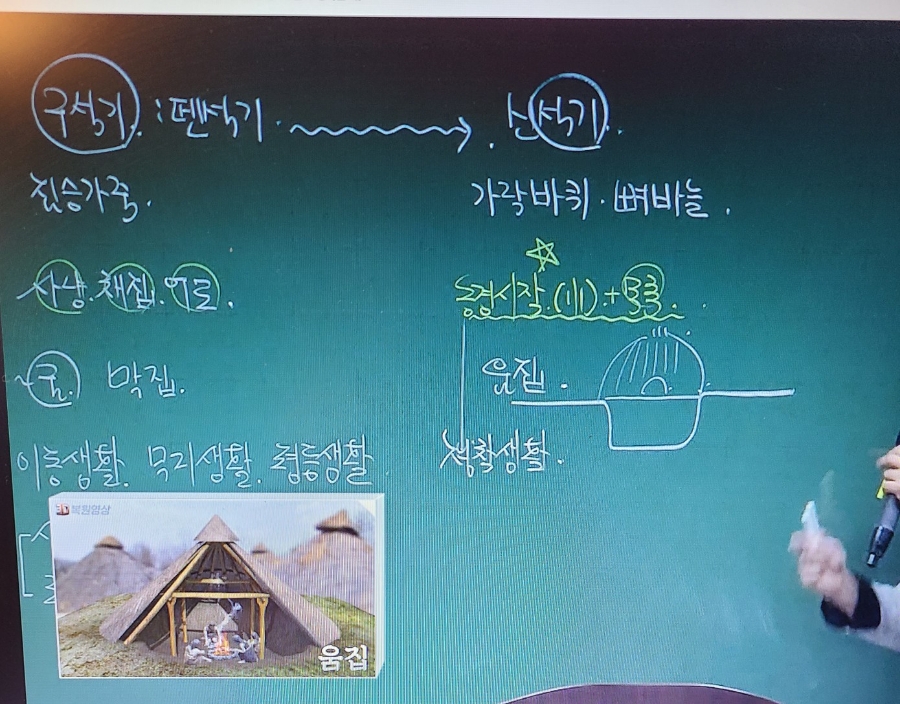 구석기 : 뗀석기 → 신석기
짐승가죽. 가락바퀴. 뼈바늘.
사냥. 채집. 어로. ☆ 농경시작.(小) + 목축.
굴. 막집. 움집.
이동생활. 무리생활. 평등생활 정착생활.
3D복원영상
움집